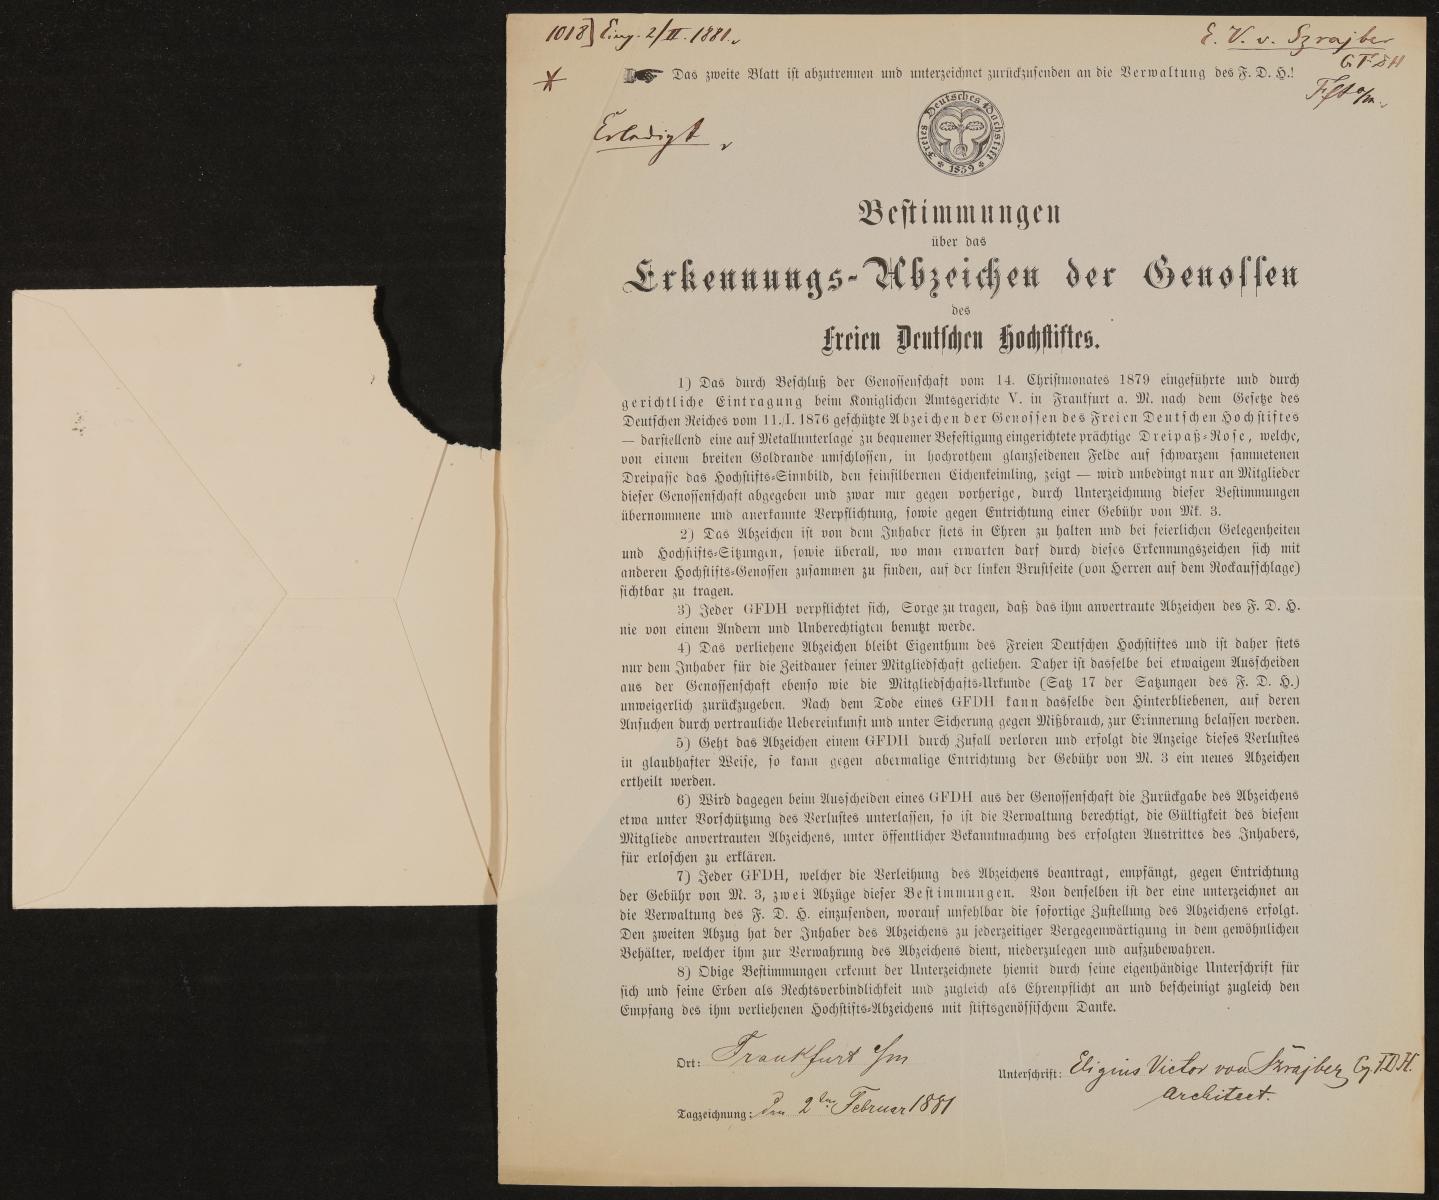 1018] Eing. 2/II. 1881.
E. V. v. Szrajber
GFDH
Ffta/m.
Das zweite Blatt ist abzutrennen und unterzeichnet zurückzusenden an die Verwaltung des F. D. H.!
Erledigt
Freies Deutsches Hochstift
* 1859 *
Bestimmungen
über das
Erkennungs-Abzeichen der Genossen
des
Freien Deutschen Hochstiftes.
1) Das durch Beschluß der Genossenschaft vom 14. Christmonates 1879 eingeführte und durch
gerichtliche Eintragung beim Königlichen Amtsgerichte V. in Frankfurt a. M. nach dem Gesetze des
Deutschen Reiches vom 11./I. 1876 geschützte Abzeichen der Genossen des Freien Deutschen Hochstiftes
— darstellend eine auf Metallunterlage zu bequemer Befestigung eingerichtete prächtige Dreipaß-Rose, welche,
von einem breiten Goldrande umschlossen, in hochrothem glanzseidenen Felde auf schwarzem sammetenen
Dreipasse das Hochstifts-Sinnbild, den feinsilbernen Eichenkeimling, zeigt — wird unbedingt nur an Mitglieder
dieser Genossenschaft abgegeben und zwar nur gegen vorherige, durch Unterzeichnung dieser Bestimmungen
übernommene und anerkannte Verpflichtung, sowie gegen Entrichtung einer Gebühr von Mk. 3.
2) Das Abzeichen ist von dem Inhaber stets in Ehren zu halten und bei feierlichen Gelegenheiten
und Hochstifts-Sitzungen, sowie überall, wo man erwarten darf durch dieses Erkennungszeichen sich mit
anderen Hochstifts-Genossen zusammen zu finden, auf der linken Brustseite (von Herren auf dem Rockaufschlage)
sichtbar zu tragen.
3) Jeder GFDH verpflichtet sich, Sorge zu tragen, daß das ihm anvertraute Abzeichen des F. D. H.
nie von einem Andern und Unberechtigten benutzt werde.
4) Das verliehene Abzeichen bleibt Eigenthum des Freien Deutschen Hochstiftes und ist daher stets
nur dem Inhaber für die Zeitdauer seiner Mitgliedschaft geliehen. Daher ist dasselbe bei etwaigem Ausscheiden
aus der Genossenschaft ebenso wie die Mitgliedschafts-Urkunde (Satz 17 der Satzungen des F. D. H.)
unweigerlich zurückzugeben. Nach dem Tode eines GFDH kann dasselbe den Hinterbliebenen, auf deren
Ansuchen durch vertrauliche Uebereinkunft und unter Sicherung gegen Mißbrauch, zur Erinnerung belassen werden.
5) Geht das Abzeichen einem GFDH durch Zufall verloren und erfolgt die Anzeige dieses Verlustes
in glaubhafter Weise, so kann gegen abermalige Entrichtung der Gebühr von M. 3 ein neues Abzeichen
ertheilt werden.
6) Wird dagegen beim Ausscheiden eines GFDH aus der Genossenschaft die Zurückgabe des Abzeichens
etwa unter Vorschützung des Verlustes unterlassen, so ist die Verwaltung berechtigt, die Gültigkeit des diesem
Mitgliede anvertrauten Abzeichens, unter öffentlicher Bekanntmachung des erfolgten Austrittes des Inhabers,
für erloschen zu erklären.
7) Jeder GFDH, welcher die Verleihung des Abzeichens beantragt, empfängt, gegen Entrichtung
der Gebühr von M. 3, zwei Abzüge dieser Bestimmungen. Von denselben ist der eine unterzeichnet an
die Verwaltung des F. D. H. einzusenden, worauf unfehlbar die sofortige Zustellung des Abzeichens erfolgt.
Den zweiten Abzug hat der Inhaber des Abzeichens zu jederzeitiger Vergegenwärtigung in dem gewöhnlichen
Behälter, welcher ihm zur Verwahrung des Abzeichens dient, niederzulegen und aufzubewahren.
8) Obige Bestimmungen erkennt der Unterzeichnete hiemit durch seine eigenhändige Unterschrift für
sich und seine Erben als Rechtsverbindlichkeit und zugleich als Ehrenpflicht an und bescheinigt zugleich den
Empfang des ihm verliehenen Hochstifts-Abzeichens mit stiftsgenössischem Danke.
Ort: Frankfurt a/m
Unterschrift: Eligius Victor von Szrajber GFDH.
Architect.
Tagzeichnung: den 2ten Februar 1881